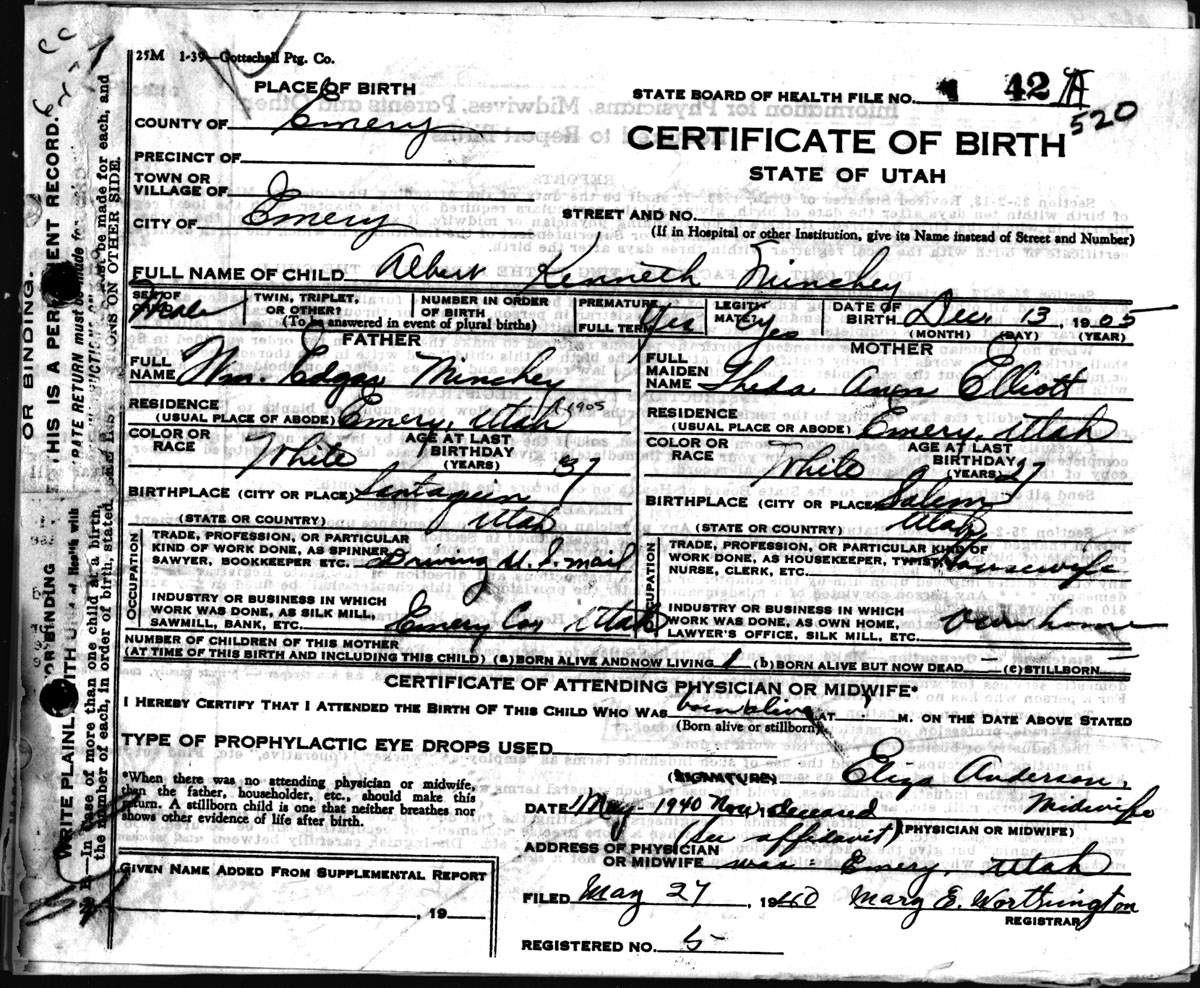 25M 1-39—Gottschall Ptg. Co.
PLACE OF BIRTH
COUNTY OF Emery
PRECINCT OF
TOWN OR
VILLAGE OF
CITY OF Emery
STATE BOARD OF HEALTH FILE NO. 42 A
520
CERTIFICATE OF BIRTH
STATE OF UTAH
STREET AND NO.
(If in Hospital or other Institution, give its Name instead of Street and Number)
FULL NAME OF CHILD Albert Kenneth Minchey
SEX OF Male
TWIN, TRIPLET, OR OTHER?
NUMBER IN ORDER OF BIRTH
(To be answered in event of plural births)
PREMATURE
FULL TERM Yes
LEGITIMATE? Yes
DATE OF BIRTH Dec. 13, 1905
(MONTH) (DAY) (YEAR)
FATHER
FULL NAME Wm. Edgar Minchey
RESIDENCE
(USUAL PLACE OF ABODE) Emery, Utah 1905
COLOR OR RACE White
AGE AT LAST BIRTHDAY (YEARS) 37
BIRTHPLACE (CITY OR PLACE) Santaquin
(STATE OR COUNTRY) Utah
OCCUPATION
TRADE, PROFESSION, OR PARTICULAR
KIND OF WORK DONE, AS SPINNER,
SAWYER, BOOKKEEPER ETC. Driving U.S. mail
INDUSTRY OR BUSINESS IN WHICH
WORK WAS DONE, AS SILK MILL,
SAWMILL, BANK, ETC. Emery Co. Utah
MOTHER
FULL MAIDEN NAME Theda Ann Elliott
RESIDENCE
(USUAL PLACE OR ABODE) Emery, Utah
COLOR OR RACE White
AGE AT LAST BIRTHDAY (YEARS) 27
BIRTHPLACE (CITY OR PLACE) Salem
(STATE OR COUNTRY) Utah
OCCUPATION
TRADE, PROFESSION, OR PARTICULAR KIND OF
WORK DONE, AS HOUSEKEEPER, TYPIST,
NURSE, CLERK, ETC. Housewife
INDUSTRY OR BUSINESS IN WHICH
WORK WAS DONE, AS OWN HOME,
LAWYER'S OFFICE, SILK MILL, ETC. Own home
NUMBER OF CHILDREN OF THIS MOTHER
(AT TIME OF THIS BIRTH AND INCLUDING THIS CHILD) (a) BORN ALIVE AND NOW LIVING 1 (b) BORN ALIVE BUT NOW DEAD – (c) STILLBORN –
CERTIFICATE OF ATTENDING PHYSICIAN OR MIDWIFE*
I HEREBY CERTIFY THAT I ATTENDED THE BIRTH OF THIS CHILD WHO WAS born alive AT M. ON THE DATE ABOVE STATED
(Born alive or stillborn)
TYPE OF PROPHYLACTIC EYE DROPS USED
*When there was no attending physician or midwife,
than the father, householder, etc., should make this
return. A stillborn child is one that neither breathes nor
shows other evidence of life after birth.
(SIGNATURE) Eliza Anderson,
Midwife
DATE May 1940 Now deceased
(See affidavit) (PHYSICIAN OR MIDWIFE)
ADDRESS OF PHYSICIAN
OR MIDWIFE was: Emery, Utah
GIVEN NAME ADDED FROM SUPPLEMENTAL REPORT
, 19
FILED May 27, 1940 Mary E. Worthington
REGISTRAR
REGISTERED NO. 5
OR BINDING.
THIS IS A PERMANENT RECORD.
WRITE PLAINLY WITH
N. B.—In case of more than one child at a birth, SEPARATE RETURN must be made for each, and
the number of each, in order of birth, stated. See INSTRUCTIONS ON OTHER SIDE.